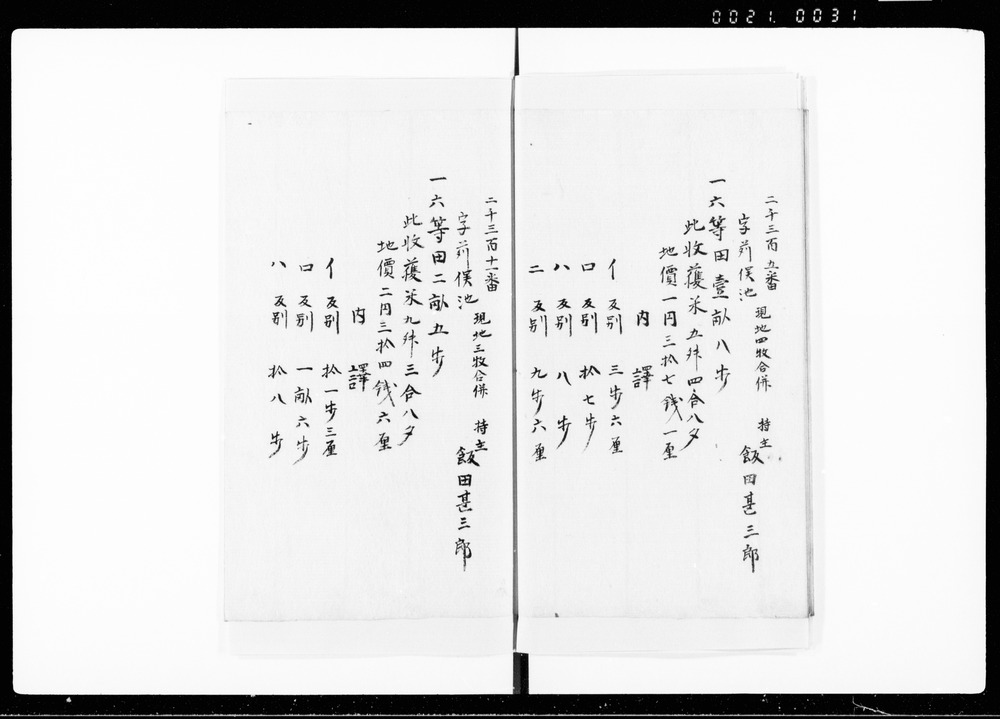 0021.0031
二千三百五番
字苅俣池 現地四牧合併 持主 飯田甚三郎
一六等田壹畝八歩
此收獲米五舛四合八夕
地價一円三拾七銭一厘
内譯
イ 反別 三歩六厘
ロ 反別 拾七歩
ハ 反別 八歩
ニ 反別 九歩六厘
二千三百十一番
字苅俣池 現地三牧合併 持主 飯田甚三郎
一六等田二畝五歩
此收獲米九舛三合八夕
地價二円三拾四銭六厘
内譯
イ 反別 拾一歩三厘
ロ 反別 一畝六歩
ハ 反別 拾八歩